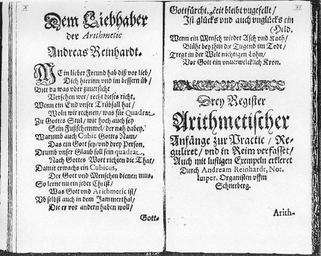 Dem Liebhaber
der Arithmetic
Andreas Reinhardt.
MEin lieber Freund hab diß vor lieb/
Dich hierinn und im bessern üb/
Versehen wer/ recht dieses richt.
Wenn ein End unser Trübsall hat/
Woln wir rechnen/ was für Quadrat
Zu Gottes Stul/ wie hoch auch sey
Sein Fußschemmel/ der nah dabey.
Warumb auch Cubic Gottes Nam/
Das ein Gott sey/ und drey Person,
Drumb unser Glaub soll seyn quadrat
Nach Gottes Wort richten die That/
Damit erwachs ein Cubicus,
Der Gott und Menschen dienen mus.
So lerne nu ein jeder Christ/
Was Gott und Arithmetic ist/
Ub selbst auch in dem Jammerthal/
Die er vor andern haben woll/
Gott-
Gottsfürcht, Zeit bleibt
Ist glücks und auch unglücks ein
Wenn ein Mensch wird Asch und Koth/
Blüht bey ihm die Tugend im Todt/
Tregt in der Welt nichtigen Lohn/
Vor Gott ein unverwelcklich Kron.
Drey Register
Arithmetischer
Anfänge zur Practic/ Re-
guliret/ und in Reim verfasset/
Auch mit lustigen Exempeln erkleret
Durch Andream Reinhardt, Not.
Imper. Organisten uffm
Schneeberg.
Arith-